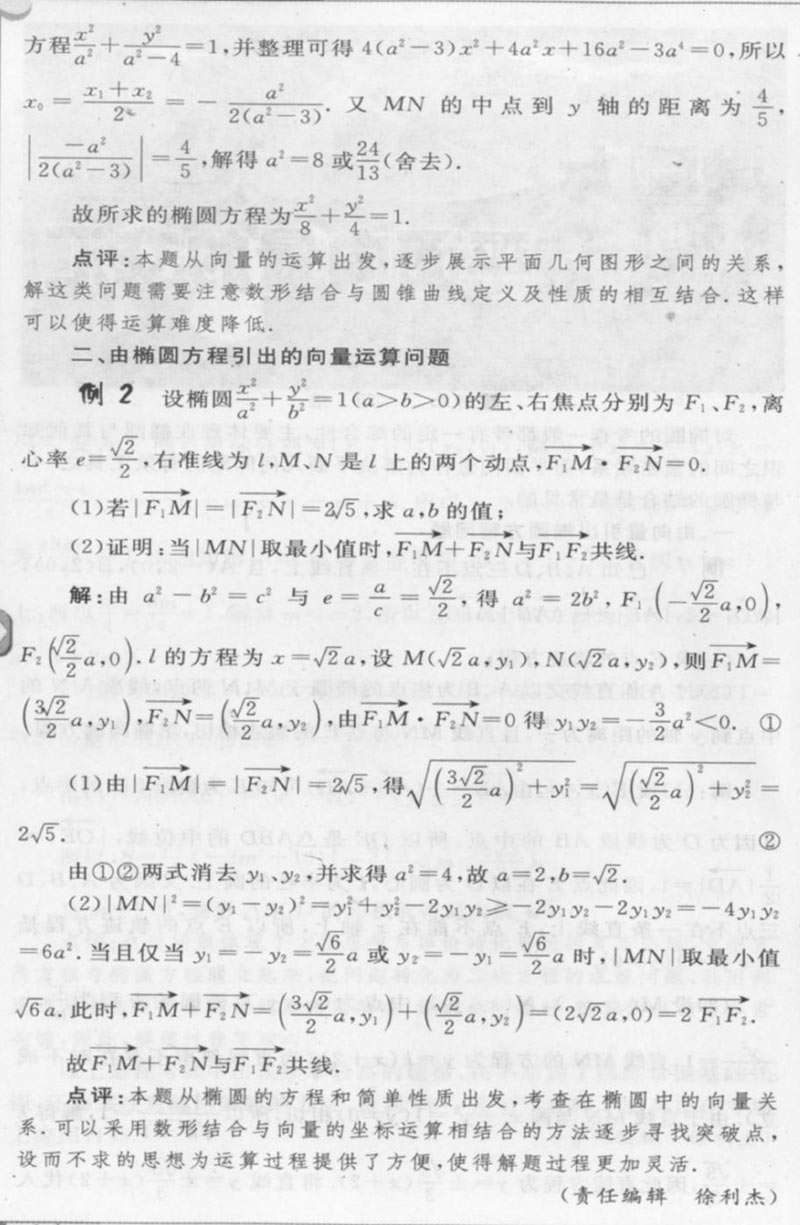 方程x²/a²+y²/(a²−4)=1,并整理可得 4(a²−3)x²+4a²x+16a²−3a⁴=0,所以
x₀=(x₁+x₂)/2=−a²/(2(a²−3)). 又 MN 的中点到 y 轴的距离为 4/5,
|−a²/(2(a²−3))|=4/5,解得 a²=8 或24/13(舍去).
故所求的椭圆方程为x²/8+y²/4=1.
点评:本题从向量的运算出发,逐步展示平面几何图形之间的关系,
解这类问题需要注意数形结合与圆锥曲线定义及性质的相互结合.这样
可以使得运算难度降低.
二、由椭圆方程引出的向量运算问题
例 2 设椭圆x²/a²+y²/b²=1(a>b>0)的左、右焦点分别为 F₁、F₂,离
心率 e=√2/2,右准线为 l,M、N 是 l 上的两个动点,F₁M→·F₂N→=0.
(1)若|F₁M→|=|F₂N→|=2√5,求 a,b 的值;
(2)证明:当|MN|取最小值时,F₁M→+F₂N→与F₁F₂→共线.
解:由 a²−b²=c² 与 e=a/c=√2/2,得 a²=2b²,F₁(−√2/2a,0),
F₂(√2/2a,0).l 的方程为 x=√2a,设 M(√2a,y₁),N(√2a,y₂),则F₁M→=
(3√2/2a,y₁),F₂N→=(√2/2a,y₂),由F₁M→·F₂N→=0 得 y₁y₂=−3/2a²<0. ①
(1)由|F₁M→|=|F₂N→|=2√5,得√((3√2/2a)²+y₁²)=√((√2/2a)²+y₂²)=
2√5. ②
由①②两式消去 y₁、y₂,并求得 a²=4,故 a=2,b=√2.
(2)|MN|²=(y₁−y₂)²=y₁²+y₂²−2y₁y₂≥−2y₁y₂−2y₁y₂=−4y₁y₂
=6a². 当且仅当 y₁=−y₂=√6/2a 或 y₂=−y₁=√6/2a 时,|MN|取最小值
√6a. 此时,F₁M→+F₂N→=(3√2/2a,y₁)+(√2/2a,y₂)=(2√2a,0)=2F₁F₂→.
故F₁M→+F₂N→与F₁F₂→共线.
点评:本题从椭圆的方程和简单性质出发,考查在椭圆中的向量关
系.可以采用数形结合与向量的坐标运算相结合的方法逐步寻找突破点,
设而不求的思想为运算过程提供了方便,使得解题过程更加灵活.
(责任编辑 徐利杰)